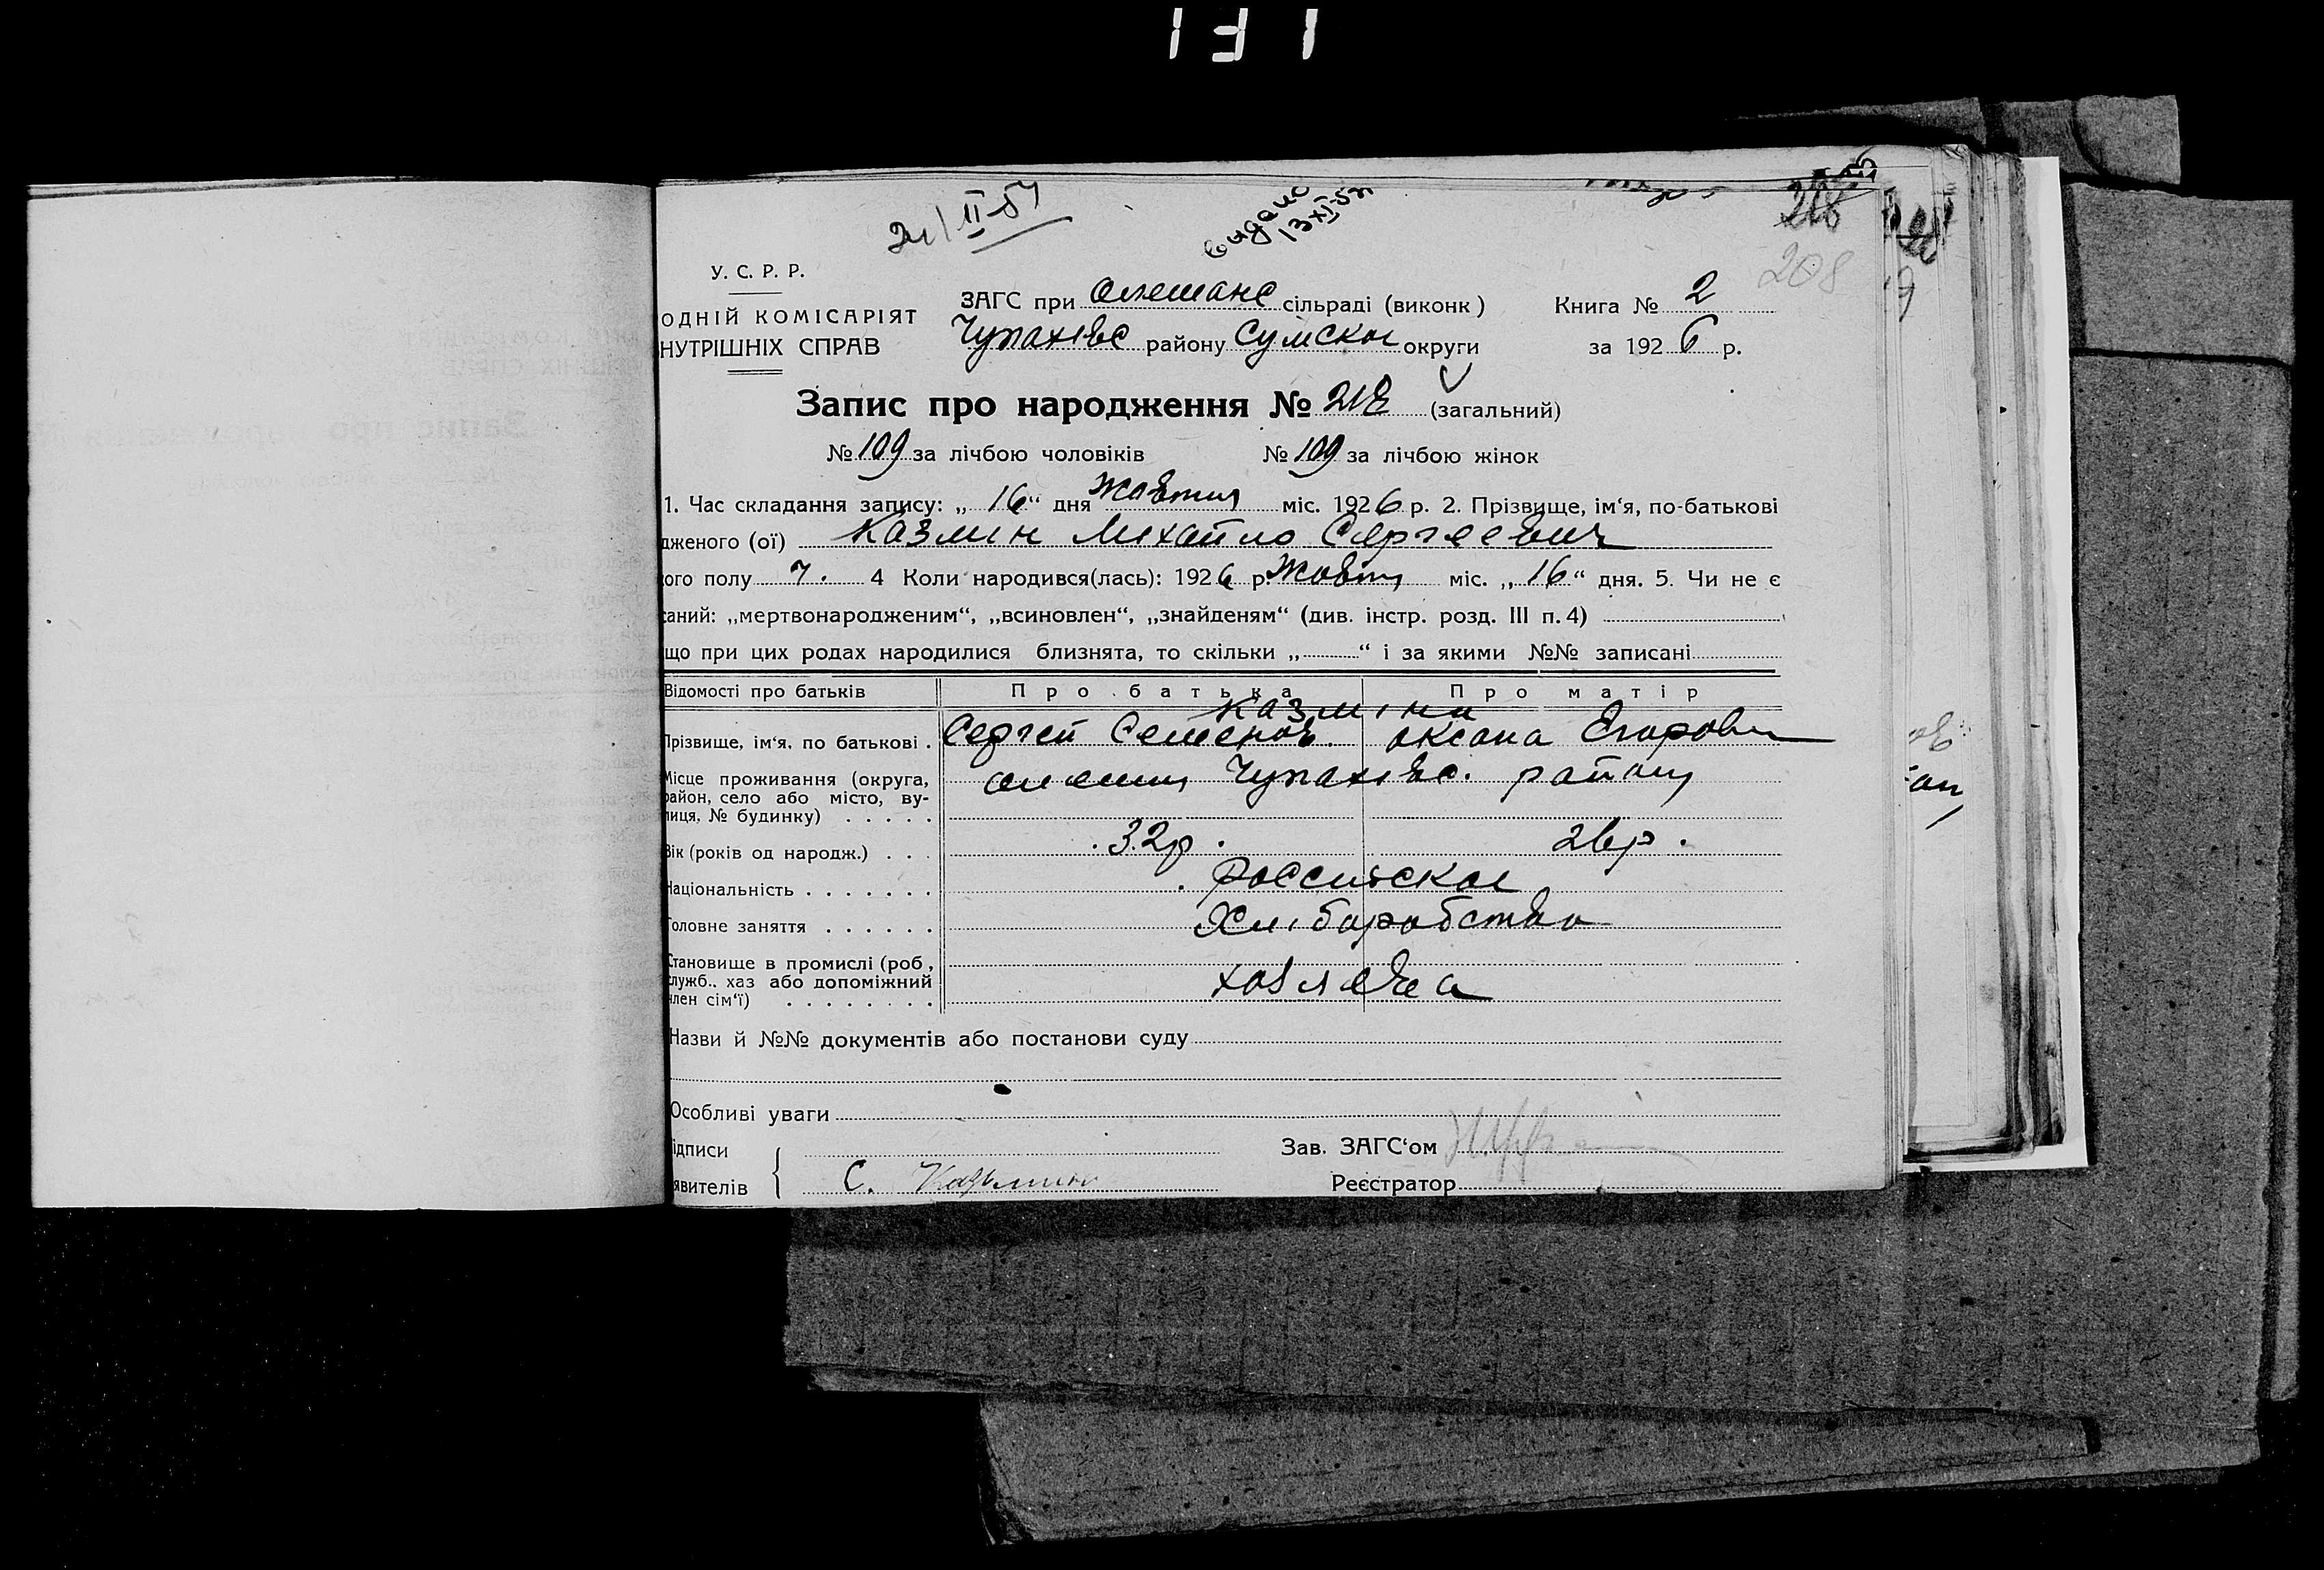 171
21/II-57
видано
13 XI-57
218
208
У. С. Р. Р.
ОДНІЙ КОМІСАРІЯТ
НУТРІШНІХ СПРАВ
ЗАГС при Олешанс сільраді (виконк)
Книга № 2
Чупахівс району Сумской округи
за 1926 р.
Запис про народження № 218 (загальний)
№ 109 за лічбою чоловіків № 109 за лічбою жінок
1. Час складання запису: „16“ дня Жовтня міс. 1926 р. 2. Прізвище, ім'я, по-батькові
дженого (ої) Казмин Михайло Сергеевич
ого полу ч. 4 Коли народився(лась): 1926 р. Жовтн міс. „16“ дня. 5. Чи не є
саний: „мертвонародженим“, „всиновлен“, „знайденям“ (див. інстр. розд. III п. 4)
що при цих родах народилися близнята, то скільки „ “ і за якими №№ записані
Відомості про батьків
Про батька
Про матір
Казміни
Прізвище, ім'я, по батькові . Сергей Семенов. Оксана Егоровн
Місце проживання (округа, район, село або місто, вулиця, № будинку) . . . . . Олешня Чупахівс. району
Вік (років од народж.) . . . 32 р. 26 р.
Національність . . . . . . . Российской
Головне заняття . . . . . . Хліборобство
Становище в промислі (роб,
служб.. хаз або допоміжний
член сім'ї) . . . . . . . . хозяева
Назви й №№ документів або постанови суду
Особливі уваги
ідписи
явителів
С. Казьмин
Зав. ЗАГС'ом
Реєстратор